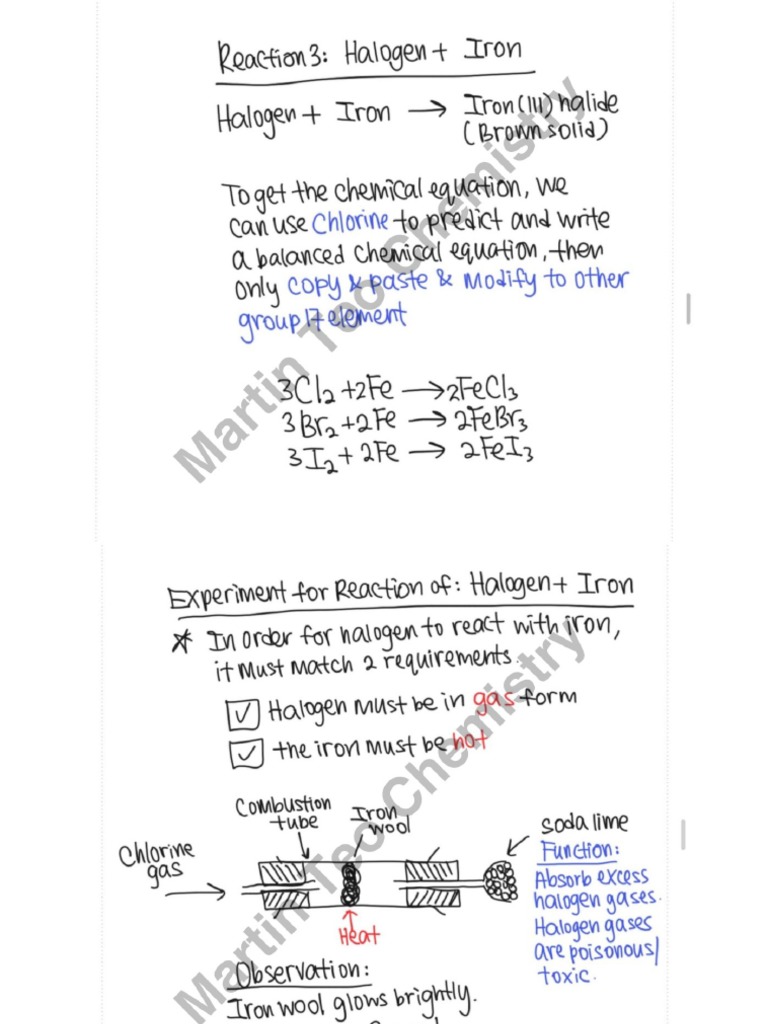 Reaction 3: Halogen + Iron
Halogen + Iron → Iron(III) halide
(Brown solid)
To get the chemical equation, we
can use Chlorine to predict and write
a balanced chemical equation, then
only copy & paste & modify to other
group 17 element
3Cl₂ + 2Fe → 2FeCl₃
3Br₂ + 2Fe → 2FeBr₃
3I₂ + 2Fe → 2FeI₃
Martin Teo Chemistry
Experiment for Reaction of: Halogen + Iron
* In order for halogen to react with iron,
it must match 2 requirements.
☑ Halogen must be in gas form
☑ the iron must be hot
Chlorine
gas
Combustion
tube
Iron
wool
Heat
soda lime
Function:
Absorb excess
halogen gases.
Halogen gases
are poisonous/
toxic.
Observation:
Iron wool glows brightly.
Martin Teo Chemistry